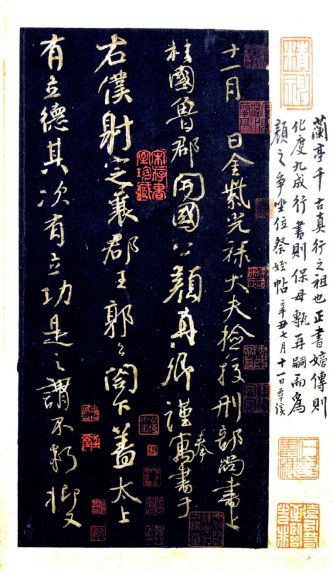 蘭亭千古真行之祖也正書嬗傳則
化度九成行書則保母甎再嗣而為
顏之爭坐位祭姪帖 辛丑七月十一日
十一月 日金紫光祿大夫撿挍刑部尚書上
柱國魯郡開國公顏真卿謹奉寓書于
右僕射定襄郡王郭公閤下蓋太上
有立德其次有立功是之謂不朽抑又